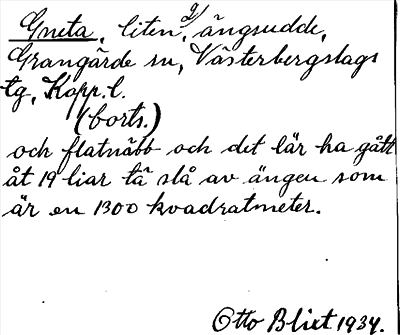 Gneta, liten 2/ ängsudde,
Grangärde sn, Västerbergslags
tg, Kopp. l.
(forts.)
och flatnäbb och det lär ha gått
åt 19 liar tä slå av ängen som
är en 1300 kvadratmeter.
Otto Blixt 1934.